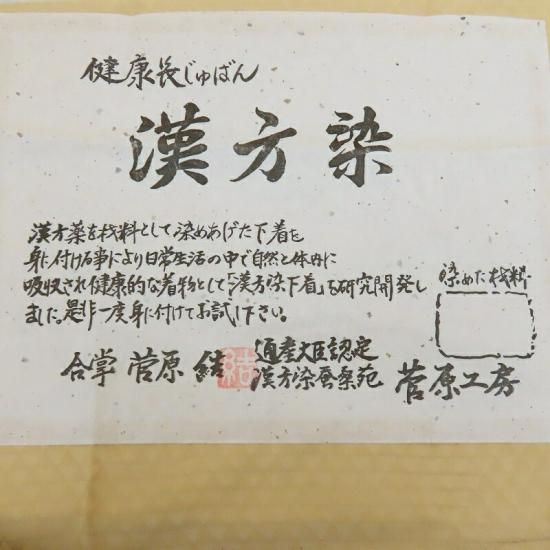 健康長じゅばん
漢方染
漢方薬を材料として染めあげた下着を
身に付ける事により日常生活の中で自然と体内に
吸収され健康的な着物として「漢方染下着」を研究開発し
ました。是非一度身に付けてお試し下さい。
染めた材料
合掌 菅原 結
結
通産大臣認定
漢方染蚕桑苑
菅原工房